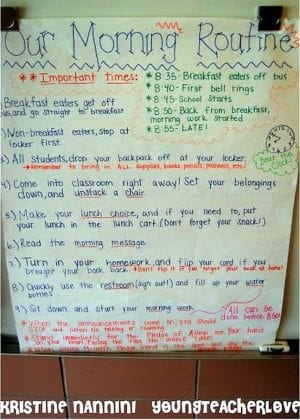 Our Morning Routine
**Important times:
*8:35- Breakfast eaters off bus
*8:40- First bell rings
*8:45- School Starts
*8:50- Back from breakfast, morning work started
*8:55- LATE!
Breakfast eaters get off
bus, and go straight to breakfast
Beat the Clock!
Non-breakfast eaters, stop at
locker first.
3) All students, drop your backpack off at your locker.
*Remember to bring in ALL supplies, books, pencils, planners, etc!
4) Come into classroom right away! Set your belongings
down, and unstack a chair.
5) Make your lunch choice, and if you need to, put
your lunch in the lunch cart. (Don't forget your snack!)
6) Read the morning message
7.) Turn in your homework, and flip your card if you
brought your book back *Don't flip it if you forgot your book at home!
8) Quickly use the restroom (sign out!) and fill up your water
bottles
9) Sit down and start your morning work
All can be
done before 8:50!
*When the announcements come on, you should
STOP and listen. No talking or roaming
*Stand immediately for the Pledge of Alleg. Put your hand
KRISTINE NANNINI YOUNGTEACHERLOVE